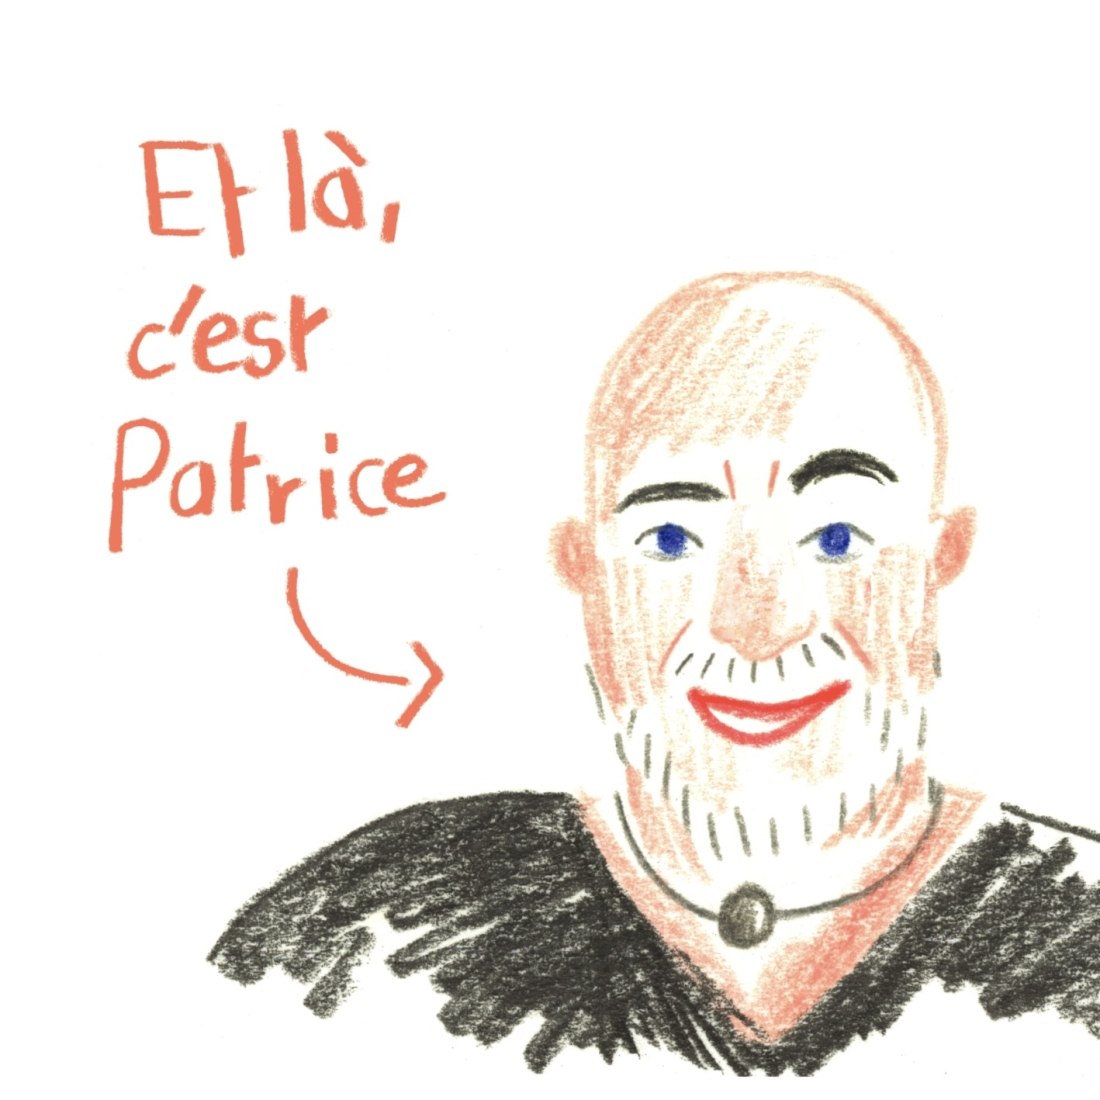 Et là,
c'est
Patrice